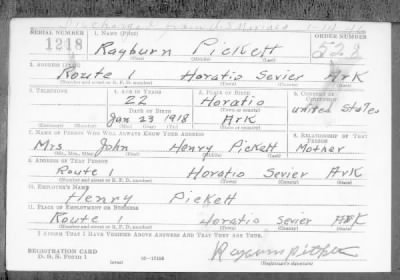 Discharged from
SERIAL NUMBER 1. NAME (Print) ORDER NUMBER
1218 Rayburn Pickett 528
(First) (Middle) (Last)
2. ADDRESS (Print)
Route 1 Horatio Sevier ArK
(Number and street or R. F. D. number) (Town) (County) (State)
3. TELEPHONE 4. AGE IN YEARS 5. PLACE OF BIRTH 6. COUNTRY OF CITIZENSHIP
22 Horatio United States
DATE OF BIRTH (Town or county)
Jan 23 1918 ArK
(Exchange) (Number) (Mo.) (Day) (Yr.) (State or country)
7. NAME OF PERSON WHO WILL ALWAYS KNOW YOUR ADDRESS 8. RELATIONSHIP OF THAT PERSON
Mrs John Henry Pickett Mother
(Mr., Mrs., Miss) (First) (Middle) (Last)
9. ADDRESS OF THAT PERSON
Route 1 Horatio Sevier ArK
(Number and street or R. F. D. number) (Town) (County) (State)
10. EMPLOYER'S NAME
Henry Pickett
11. PLACE OF EMPLOYMENT OR BUSINESS
Route 1 Horatio Sevier ArK
(Number and street or R. F. D. number) (Town) (County) (State)
I AFFIRM THAT I HAVE VERIFIED ABOVE ANSWERS AND THAT THEY ARE TRUE.
REGISTRATION CARD
D. S. S. Form 1 (over) Rayburn Pickett
(Registrant's signature)